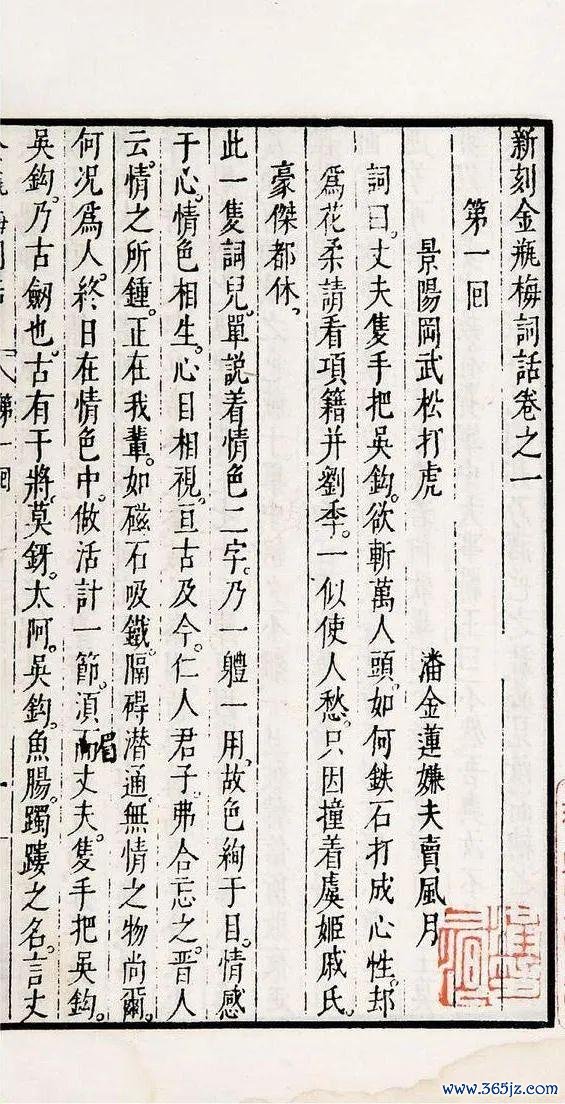 新刻金瓶梅詞話卷之一
第一回
景陽岡武松打虎 潘金蓮嫌夫賣風月
詞曰。丈夫隻手把吳鈎。欲斬萬人頭。如何鉄石打成心性。却
爲花柔請看項籍并劉季。一似使人愁。只因撞着虞姬戚氏。
豪傑都休。
此一隻詞兒。單說着情色二字。乃一體一用。故色絢于目。情感
于心。情色相生。心目相視。亘古及今。仁人君子。弗合忘之。晋人
云。情之所鍾。正在我輩。如磁石吸鐵。隔碍潜通。無情之物尚爾。
何况爲人。終日在情色中。做活計一節。須而丈夫隻手把吳鈎。
眉
吳鈎。乃古劒也。古有干將。莫鋣。太阿。吳鈎。魚腸。躅𨅬之名。言丈
第一回
www.365jz.com